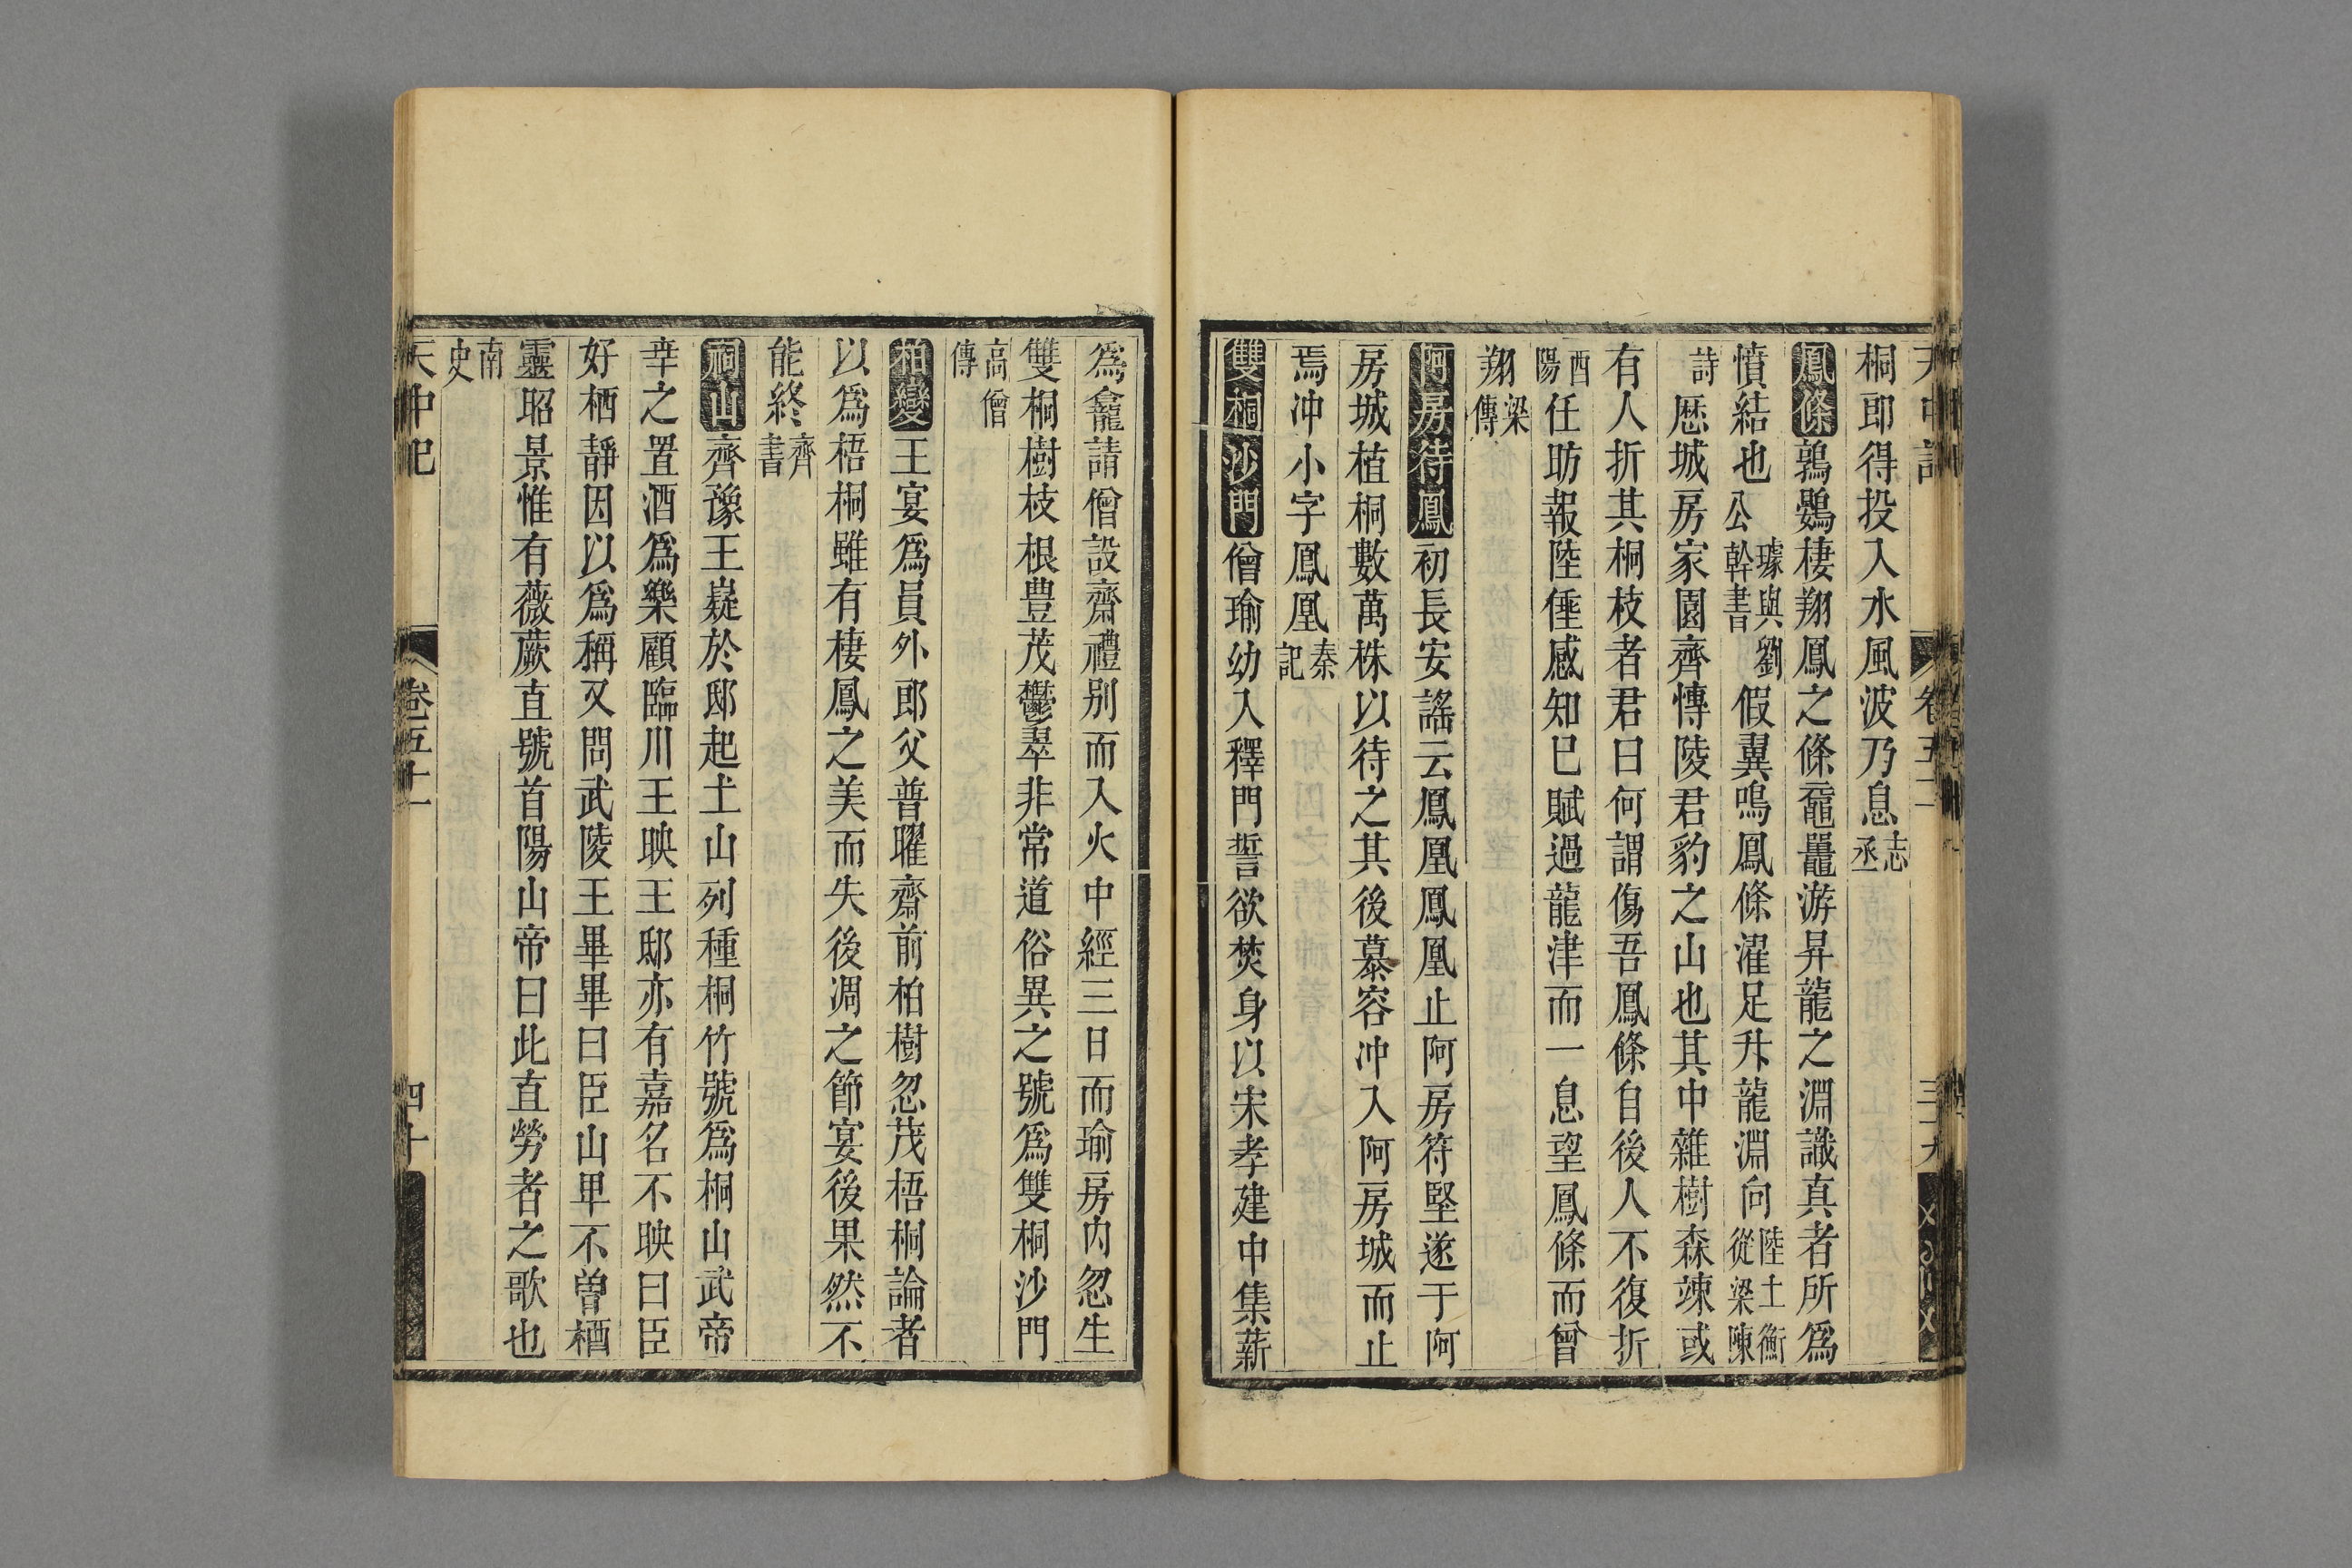 天中記 卷五十一 三十九
桐即得投入水風波乃息志丞
鳳條鶉鷃棲翔鳳之條黿鼉游昇龍之淵識真者所爲
憤結也公幹書璩與劉假翼鳴鳳條濯足升龍淵向從梁陳陸士衡
詩歷城房家園齊博陵君豹之山也其中雜樹森竦或
有人折其桐枝者君曰何謂傷吾鳳條自後人不復折
酉陽任昉報陸倕感知巳賦過龍津而一息望鳳條而曾
翔梁傳
阿房待鳳初長安謠云鳳凰鳳凰止阿房符堅遂于阿
房城植桐數萬株以待之其後慕容冲入阿房城而止
焉冲小字鳳凰秦記
雙桐沙門僧瑜幼入釋門誓欲焚身以宋孝建中集薪
爲龕請僧設齋禮別而入火中經三日而瑜房內忽生
雙桐樹枝根豊茂鬱翠非常道俗異之號爲雙桐沙門
高僧傳
柏變王宴爲員外郎父普曜齋前柏樹忽茂梧桐論者
以爲梧桐雖有棲鳳之美而失後凋之節宴後果然不
能終齊書
桐山齊豫王嶷於邸起土山列種桐竹號爲桐山武帝
幸之置酒爲樂顧臨川王映王邸亦有嘉名不映曰臣
好栖靜因以爲稱又問武陵王畢畢曰臣山卑不曾栖
靈昭景惟有薇蕨直號首陽山帝曰此直勞者之歌也
南史
天中記 卷五十一 四十